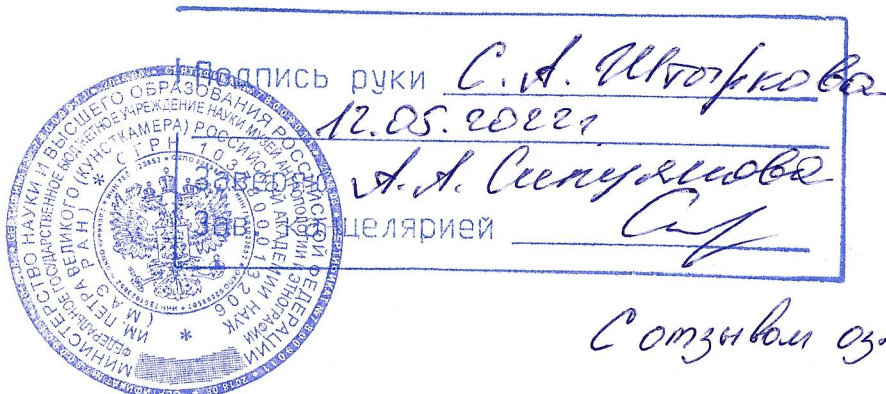 Подпись руки С. А. Штыркова
12.05.2022 г
Заверяю А. А.
Зав. канцелярией
С отзывом оз
МИНИСТЕРСТВО НАУКИ И ВЫСШЕГО ОБРАЗОВАНИЯ РОССИЙСКОЙ ФЕДЕРАЦИИ
ФЕДЕРАЛЬНОЕ ГОСУДАРСТВЕННОЕ БЮДЖЕТНОЕ УЧРЕЖДЕНИЕ НАУКИ МУЗЕЙ АНТРОПОЛОГИИ И ЭТНОГРАФИИ
ИМ. ПЕТРА ВЕЛИКОГО (КУНСТКАМЕРА) РОССИЙСКОЙ АКАДЕМИИ НАУК
(МАЭ РАН) * ОГРН